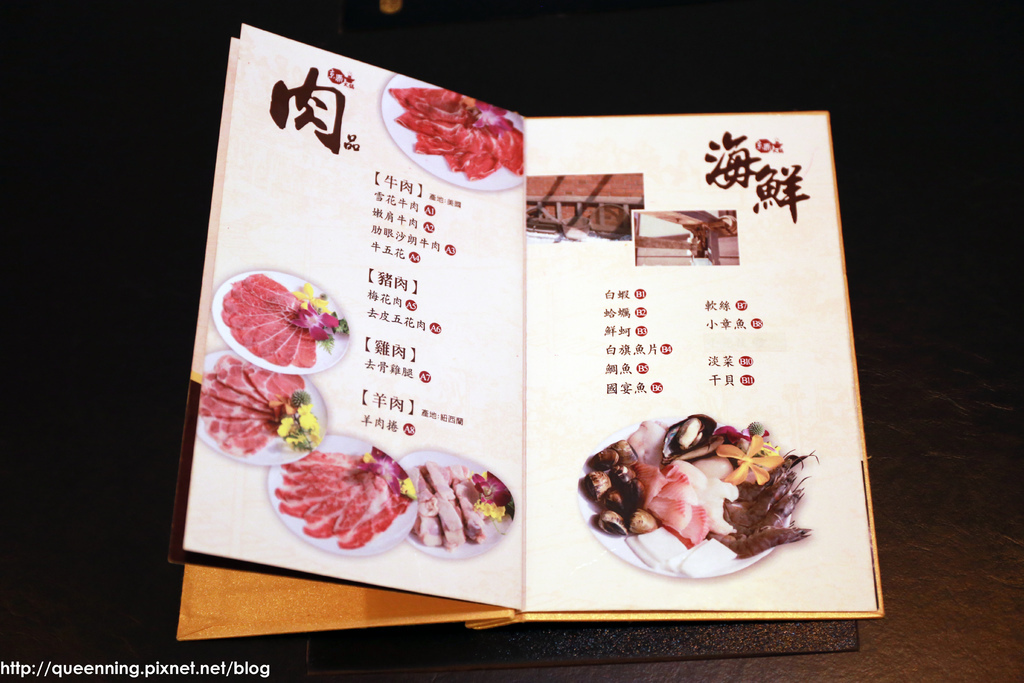 肉品
【牛肉】產地:美國
雪花牛肉 A1
嫩肩牛肉 A2
肋眼沙朗牛肉 A3
牛五花 A4
【豬肉】
梅花肉 A5
去皮五花肉 A6
【雞肉】
去骨雞腿 A7
【羊肉】產地:紐西蘭
羊肉捲 A8
海鮮
白蝦 B1
蛤蠣 B2
鮮蚵 B3
白旗魚片 B4
鯛魚 B5
國宴魚 B6
軟絲 B7
小章魚 B8
淡菜 B10
干貝 B11
http://queenning.pixnet.net/blog